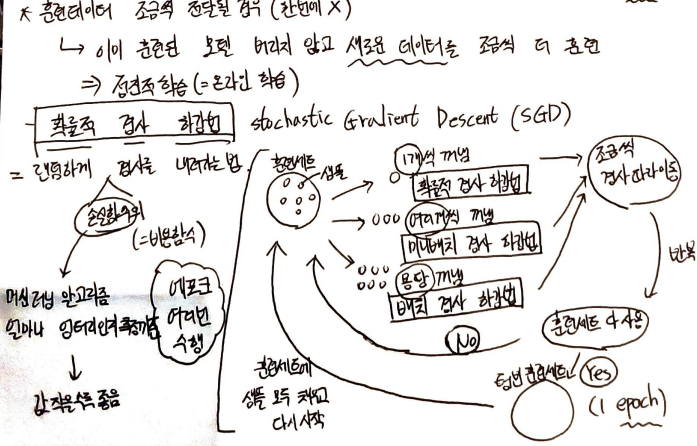 * 훈련데이터 조금씩 전달될 경우 (한번에 X)
↳ 이미 훈련된 모델 버리지 않고 새로운 데이터를 조금씩 더 훈련
⇒ 점진적 학습 (=온라인 학습)
- 확률적 경사 하강법 stochastic Gradient Descent (SGD)
= 랜덤하게 경사를 내려가는 법
손실함수위
(=비용함수)
머신러닝 알고리즘
얼마나 엉터리인지
↓
값 작을수록 좋음
에포크
여러번
수행
훈련세트
샘플
1개씩 꺼냄
확률적 경사 하강법
여러개씩 꺼냄
미니배치 경사 하강법
몽땅 꺼냄
배치 경사 하강법
조금씩
경사 따라 이동
반복
훈련세트 다 사용
No
Yes
(1 epoch)
텅빈 훈련세트
훈련세트에
샘플 모두 채우고
다시 시작